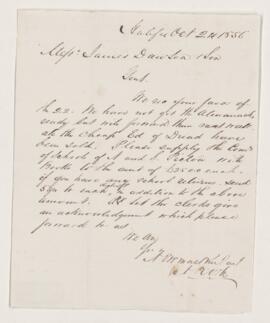 Halifax Oct 24 1856
Messrs James Dawson & Son
Gent
We recd your favor of
the 22. We have not yet the Almanacks
ready but will forward them next week
all the Cheap Ed of Dread have
been sold. Please supply the Coms
of Schools of N and S Pictou with
Books to the amt of each.
if you have any school returns send
50 to each, in addition to the above
amount. let the clerks give
an acknowledgment which please
forward to us
We are
Yr